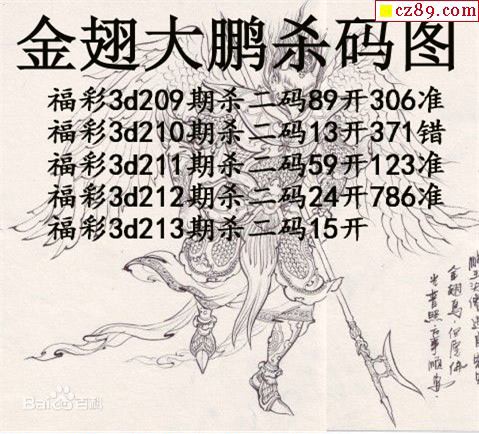 cz89.com
金翅大鹏杀码图
福彩3d209期杀二码89开306准
福彩3d210期杀二码13开371错
福彩3d211期杀二码59开123准
福彩3d212期杀二码24开786准
福彩3d213期杀二码15开
Bai 百科